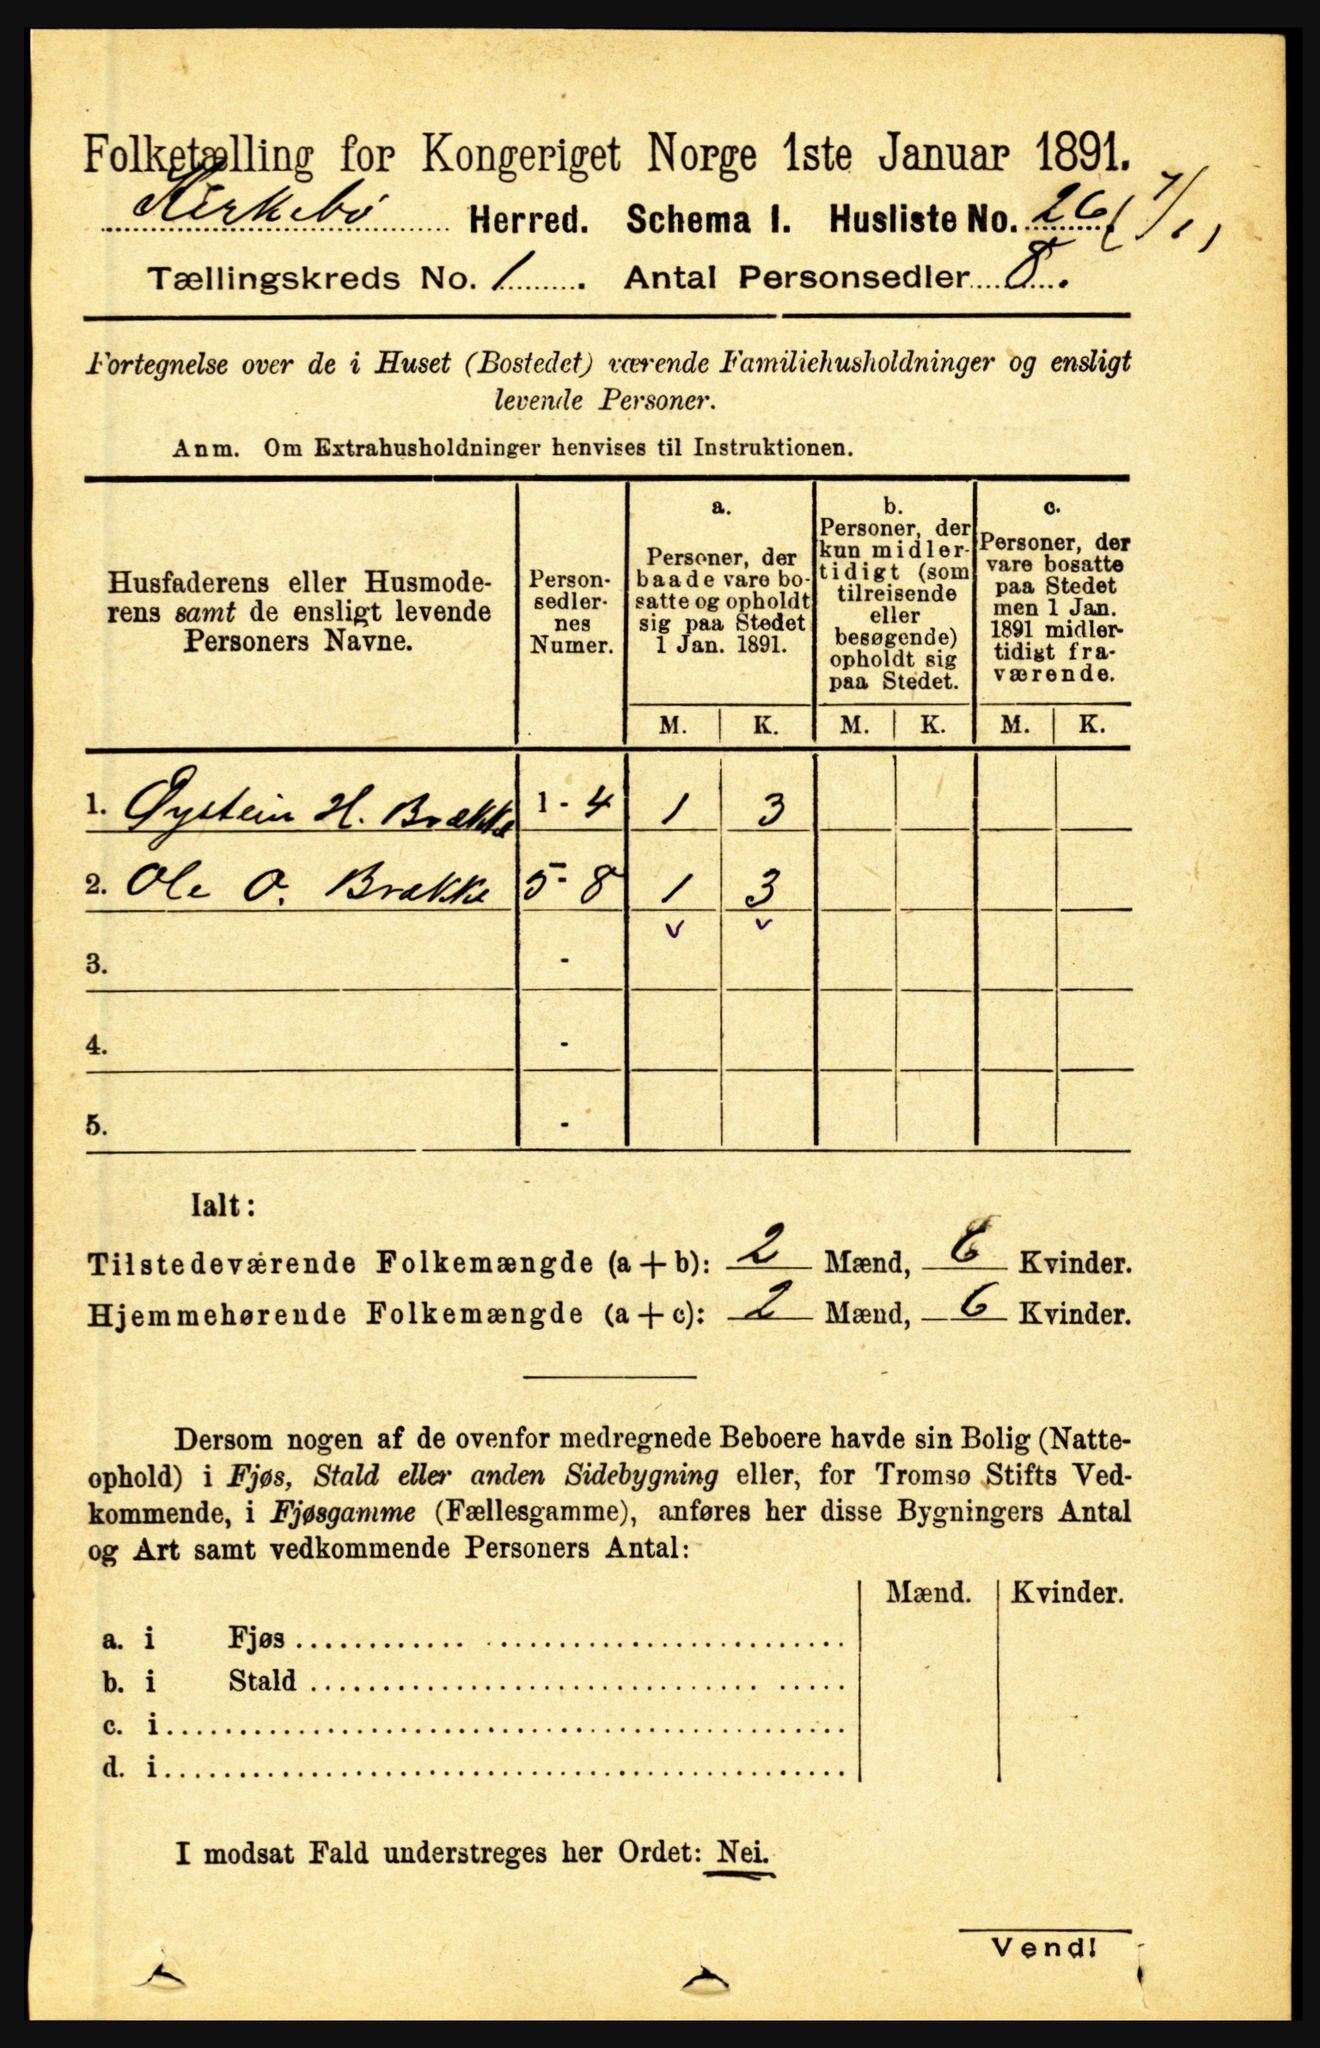 Folketælling for Kongeriget Norge 1ste Januar 1891.
Kirkebø Herred. Schema I. Husliste No. 26 (7/1)
Tællingskreds No. 1. Antal Personsedler 8.
Fortegnelse over de i Huset (Bostedet) værende Familiehusholdninger og ensligt
levende Personer.
Anm. Om Extrahusholdninger henvises til Instruktionen.
Husfaderens eller Husmode-
rens samt de ensligt levende
Personers Navne.
Person-
sedler-
nes
Numer.
a.
Personer, der
baade vare bo-
satte og opholdt
sig paa Stedet
1 Jan. 1891.
b.
Personer, der
kun midler-
tidigt (som
tilreisende
eller
besøgende)
opholdt sig
paa Stedet.
c.
Personer, der
vare bosatte
paa Stedet
men 1 Jan.
1891 midler-
tidigt fra-
værende.
M. K. M. K. M. K.
1. Øystein H. Brække 1 - 4 1 3
2. Ole O. Brække 5 - 8 1 3
v v
3. -
4. -
5. -
Ialt:
Tilstedeværende Folkemængde (a + b): 2 Mænd, 6 Kvinder.
Hjemmehørende Folkemængde (a + c): 2 Mænd, 6 Kvinder.
Dersom nogen af de ovenfor medregnede Beboere havde sin Bolig (Natte-
ophold) i Fjøs, Stald eller anden Sidebygning eller, for Tromsø Stifts Ved-
kommende, i Fjøsgamme (Fællesgamme), anføres her disse Bygningers Antal
og Art samt vedkommende Personers Antal:
Mænd. Kvinder.
a. i Fjøs
b. i Stald
c. i
d. i
I modsat Fald understreges her Ordet: Nei.
Vend!